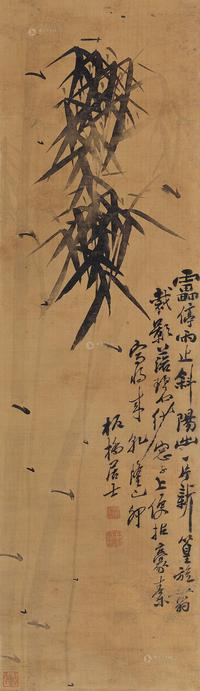 靁停雨止斜陽出一片新篁旋翦
裁影落碧紗窓子上便拈豪素
寫將來乾隆己卯
板橋居士